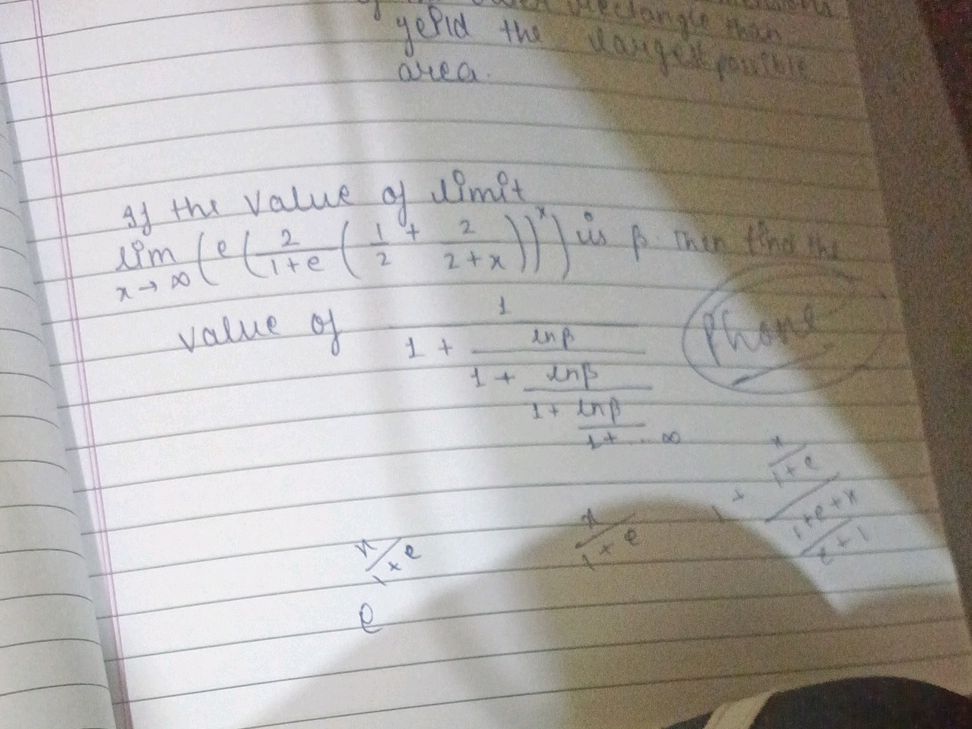 rectangle than
yeild the largest possible
area.
If the value of limit
lim x→∞ (e(2/(1+e) (1/2 + 2/(2+x)))^x) is β. Then find the
value of 1/(1 + lnβ/(1 + lnβ/(1 + lnβ/(1+ ... ∞
Phone
x/(1+e)
x/(1+e)
e